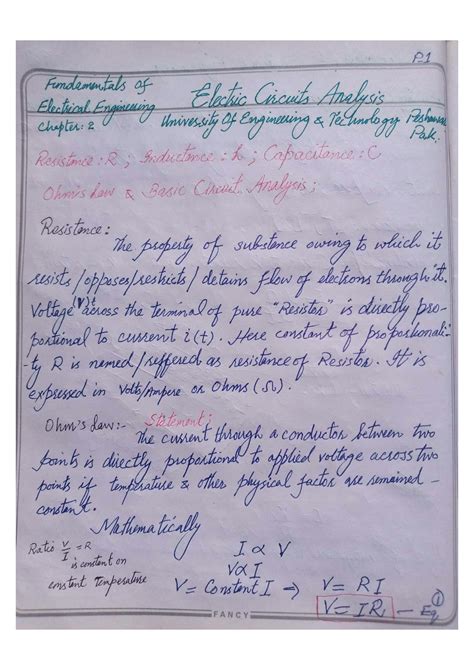 P.1
Fundamentals of
Electrical Engineering
Chapter: 2
Electric Circuits Analysis
University Of Engineering & Technology Peshawar
Pak:
Resistance: R ; Inductance: L ; Capacitance: C
Ohm's Law & Basic Circuit Analysis ;
Resistance:
The property of substance owing to which it
resists / opposes/restricts/ detains flow of electrons through it.
Voltage (V)t across the terminal of pure "Resistor" is directly pro-
portional to current i(t). Here constant of proportionali-
ty R is named/reffered as resistance of Resistor. It is
expressed in Volts/Ampere or Ohms (Ω).
Ohm's Law:- Statement;
The current through a conductor between two
points is directly proportional to applied voltage across two
points if temperature & other physical factor are remained -
constant.
Mathematically
Ratio V/I = R
is constant on
constant temperature
I ∝ V
V∝ I
V = Constant I → V = R I
V = IR, — Eq ①
FANCY